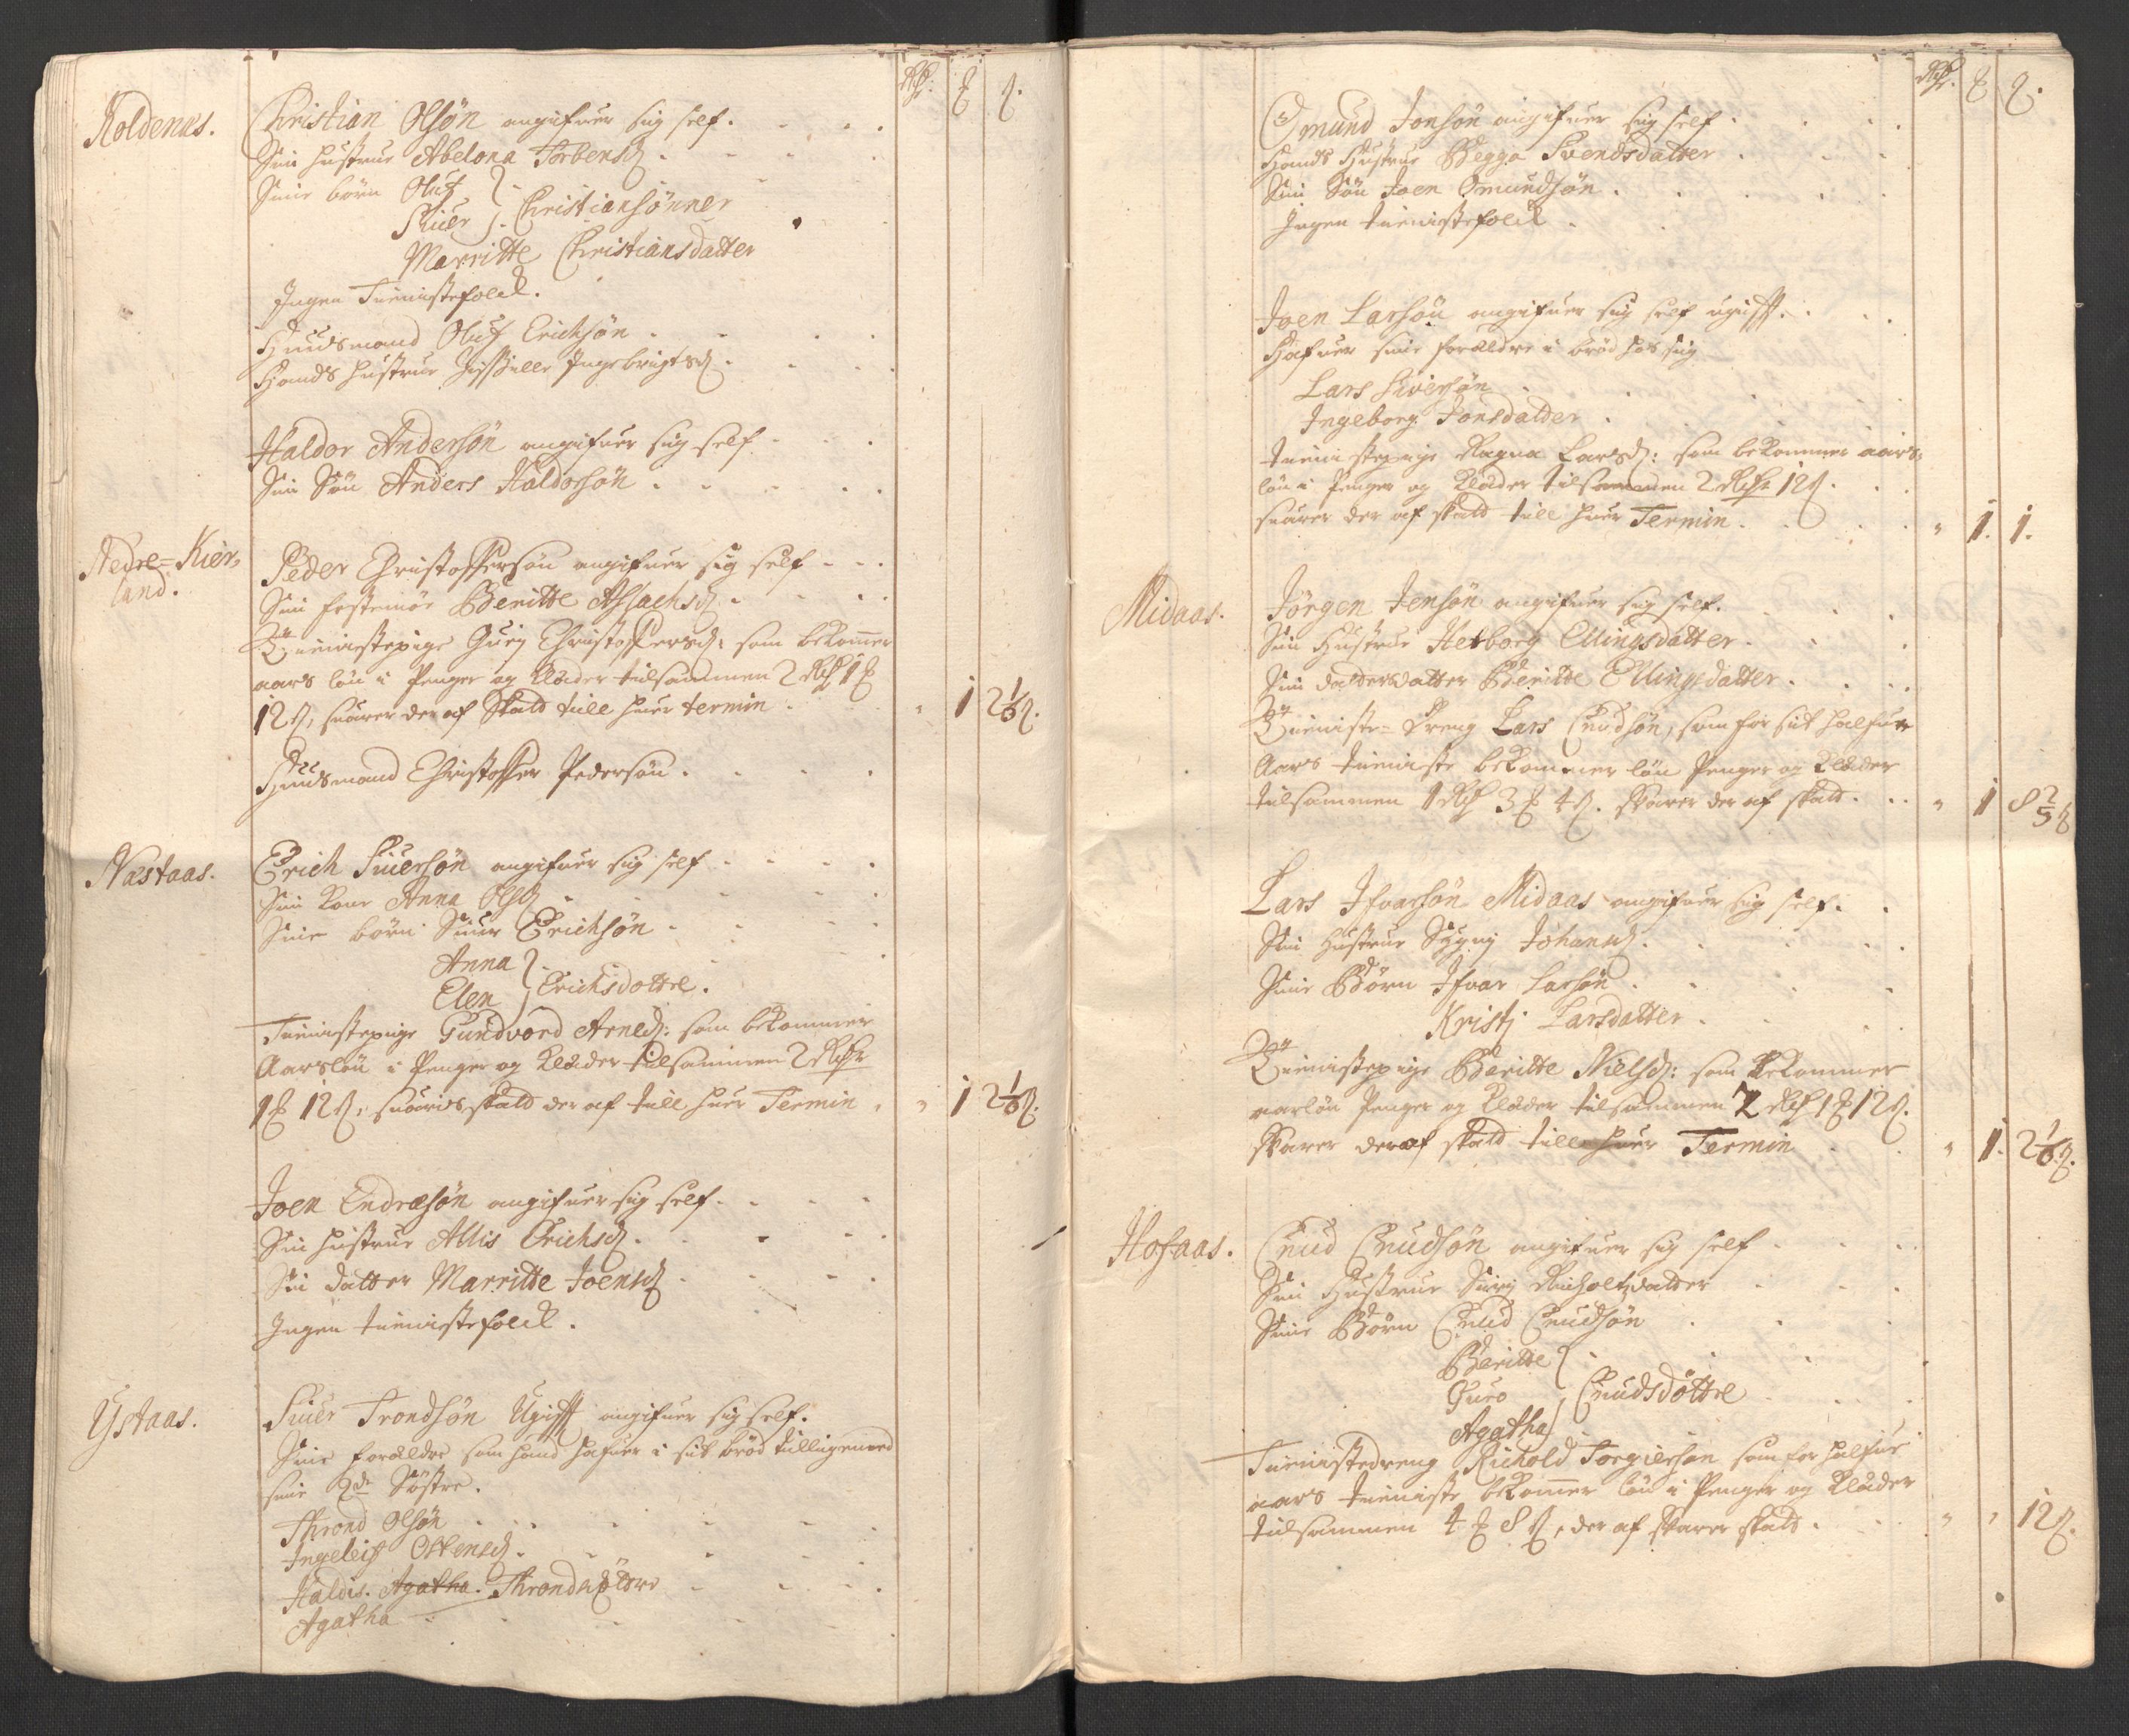 Rdr. ₰ ß.
Koldenæs. Christian Olsøn angifuer sig self.
Sin hustrue Abelona Torbensd.
Sine børn Oluf
Siuer Christiansønner
Marritte Christiansdatter
Ingen Tienistefolck.
Huusmand Oluf Erichsøn
Hands hustrue Ingebrigtsd.
Haldor Andersøn angifuer sig self
Sin Søn Anders Haldorsøn
Nedre-Kier-
land. Peder Christoffersøn angifuer sig self
Sin festemøe Beritte Assachsd.
Tienistepige Guri Christoffersd: som bekommer
aars løn i Penger og Klæder tilsammen 2 Rdr 1 ₰
12 ß, suarer der af Skatt till huer termin " 1 2 1/6 ß.
Huusmand Christoffer Pedersøn.
Næstaas. Erich Siuersøn angifuer sig self
Sin kone Anna Olsd
Sine børn Siuer Erichsøn
Anna
Elen Erichsdøttre.
Tienistepige Gundvord Arned: som bekommer
Aarsløn i Penger og Klæder tilsammen 2 Rdr
1 ₰ 12 ß, suaris skatt der af till huer Termin " 1 2 1/6 ß.
Joen Endræsøn angifuer sig self
Sin hustrue Allis Erichsd.
Sin datter Marritte Joensd
Ingen tienistefolck.
Ystaas. Siuer Trondsøn Ugift angifuer sig self.
Sine forældre som hand hafuer i sit brød tilligemed
sine 2de Søstre.
Thrond Olsøn
Ingeleif Ostensd.
Haldis. Agatha. Thronddøttre
Agatha
Rdr. ₰ ß.
Omund Jonsøn angifuer sig self
Hands Hustrue Begga Svendsdatter
Sin Søn Joen Omundsøn
Ingen tienistefolck
Joen Larsøn angifuer sig self ugift.
Hafuer sine forældre i brød hos sig
Lars Siversøn
Ingeborg Jonsdatter
tieniste pige Ragna Larsd: som bekommer aars-
løn i Penger og Klæder tilsammen 2 Rdr 12 ß.
suarer der af skatt till huer Termin " 1. 1.
Midaas. Jørgen Jensøn angifuer sig self.
Sin Hustrue Herborg Ellingsdatter
Sin datterdatter Beritte Ellingsdatter
Tieniste-Dreng Lars Cnudsøn, som for sit halfue
Aars tieniste bekommer løn Penger og Klæder
tilsammen 1 Rdr 3 ₰ 4 ß. suarer der af skatt " 1 8 2/5 ß
Lars Ifvarsøn Midaas angifuer sig self.
Sin Hustrue Sygni Johansd.
Sine Børn Ifvar Larsøn
Kristj Larsdatter
Tienistepige Beritte Nielsd: som bekommer
aarløn Penger og Klæder tilsammen 2 Rdr 1 ₰ 12 ß.
suarer deraf skatt till huer Termin " 1. 2 1/6 ß.
Hofaas. Cnud Cnudsøn angifuer sig self
Sin Hustrue Siri datter
Sine Børn Cnud Cnudsøn
Beritte
Guro Cnudsdøttre
Agatha
Tienistedreng Richold Torgiersøn som for halfue
aars tieniste bekommer løn i Penger og Klæder
tilsammen 4 ₰ 8 ß, der af suarer skatt " " 12 ß.